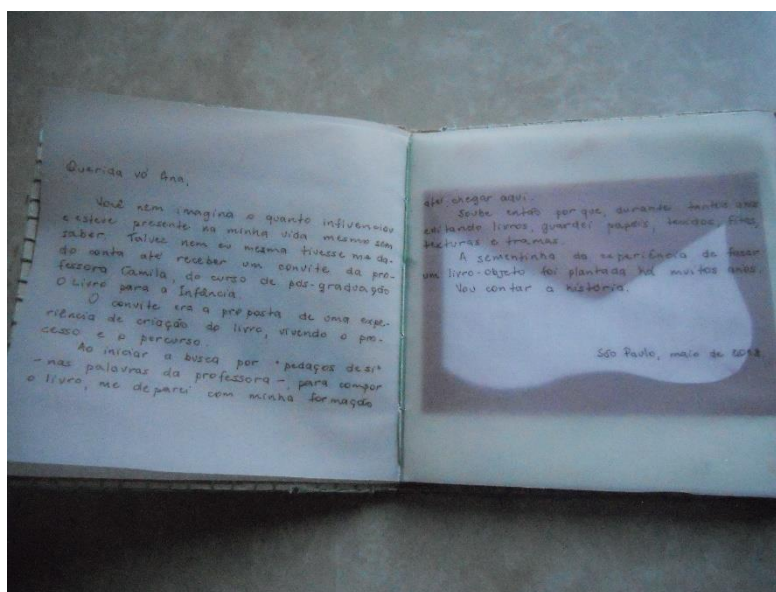 Querida vó Ana,
Você nem imagina o quanto influenciou
e esteve presente na minha vida mesmo sem
saber. Talvez nem eu mesma tivesse me da-
do conta até receber um convite da pro-
fessora Camila, do curso de pós-graduação
O Livro para a Infância.
O convite era a proposta de uma expe-
riência de criação do livro, vivendo o pro-
cesso e o percurso.
Ao iniciar a busca por "pedaços de si"
- nas palavras da professora -, para compor
o livro, me deparei com minha formação
até chegar aqui.
Soube então por que, durante tantos anos
editando livros, guardei papéis, tecidos, fitas,
texturas e tramas.
A sementinha da experiência de fazer
um livro-objeto foi plantada há muitos anos.
Vou contar a história.
São Paulo, maio de